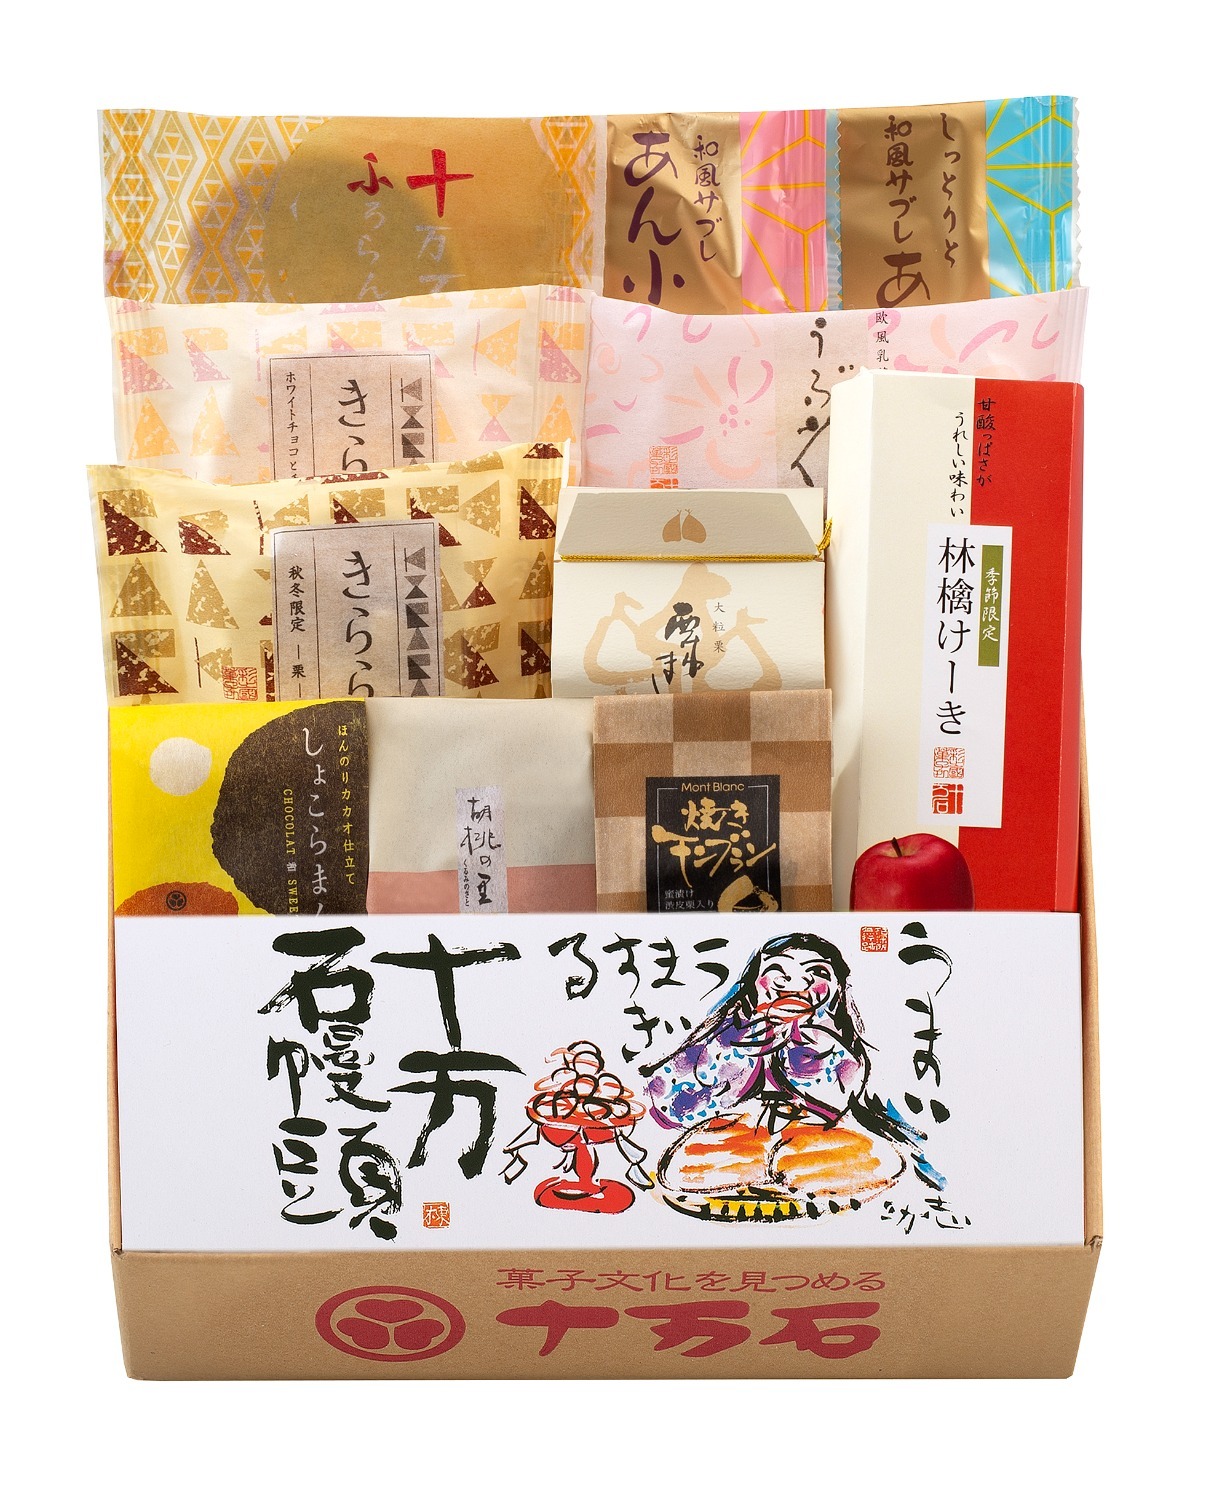 十万
ふ
うらん
和風サブレ
あん小
しっとりと
和風サブレ
あ
きらら
ホワイトチョコと
うぶ
欧風乳
甘酸っぱさが
うれしい味わい
季節限定
林檎けーき
彩菓
十万石
きらら
秋冬限定
栗
大粒栗
ほんのりカカオ仕立て
しょこらまん
CHOCOLAT 和 SWEE
胡桃の里
くるみのさと
Mont Blanc
焼き
モンブラン
蜜漬け
渋皮栗入り
うまい
うますぎる
十万
石幔頭
功志
菓子文化を見つめる
十万石